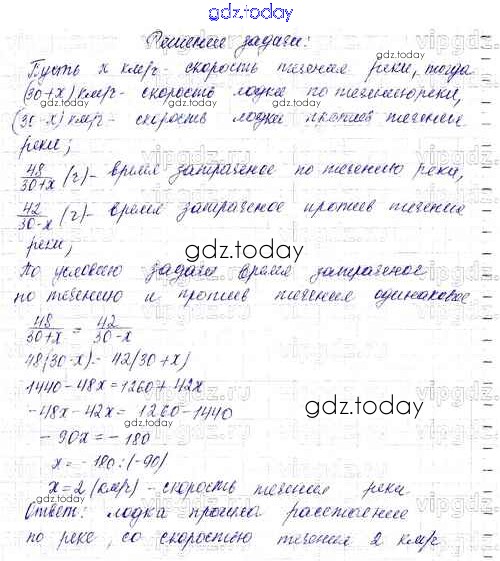 gdz.today
Решение задачи:
Пусть x км/ч - скорость течения реки, тогда
(30+x) км/ч - скорость лодки по течению реки,
(30-x) км/ч - скорость лодки против течения
реки;
48/30+x (ч) - время затраченое по течению реки,
42/30-x (ч) - время затраченое против течения
реки;
gdz.today
По условию задачи время затраченое
по течению и против течения одинаковое
48/30+x = 42/30-x
48(30-x) = 42(30+x)
1440-48x=1260+42x
-48x-42x= 1260-1440
gdz.today
-90x=-180
x=-180:(-90)
x=2 (км/ч) - скорость течения реки
Ответ: лодка прошла расстояние
по реке, со скоростью течения 2 км/ч